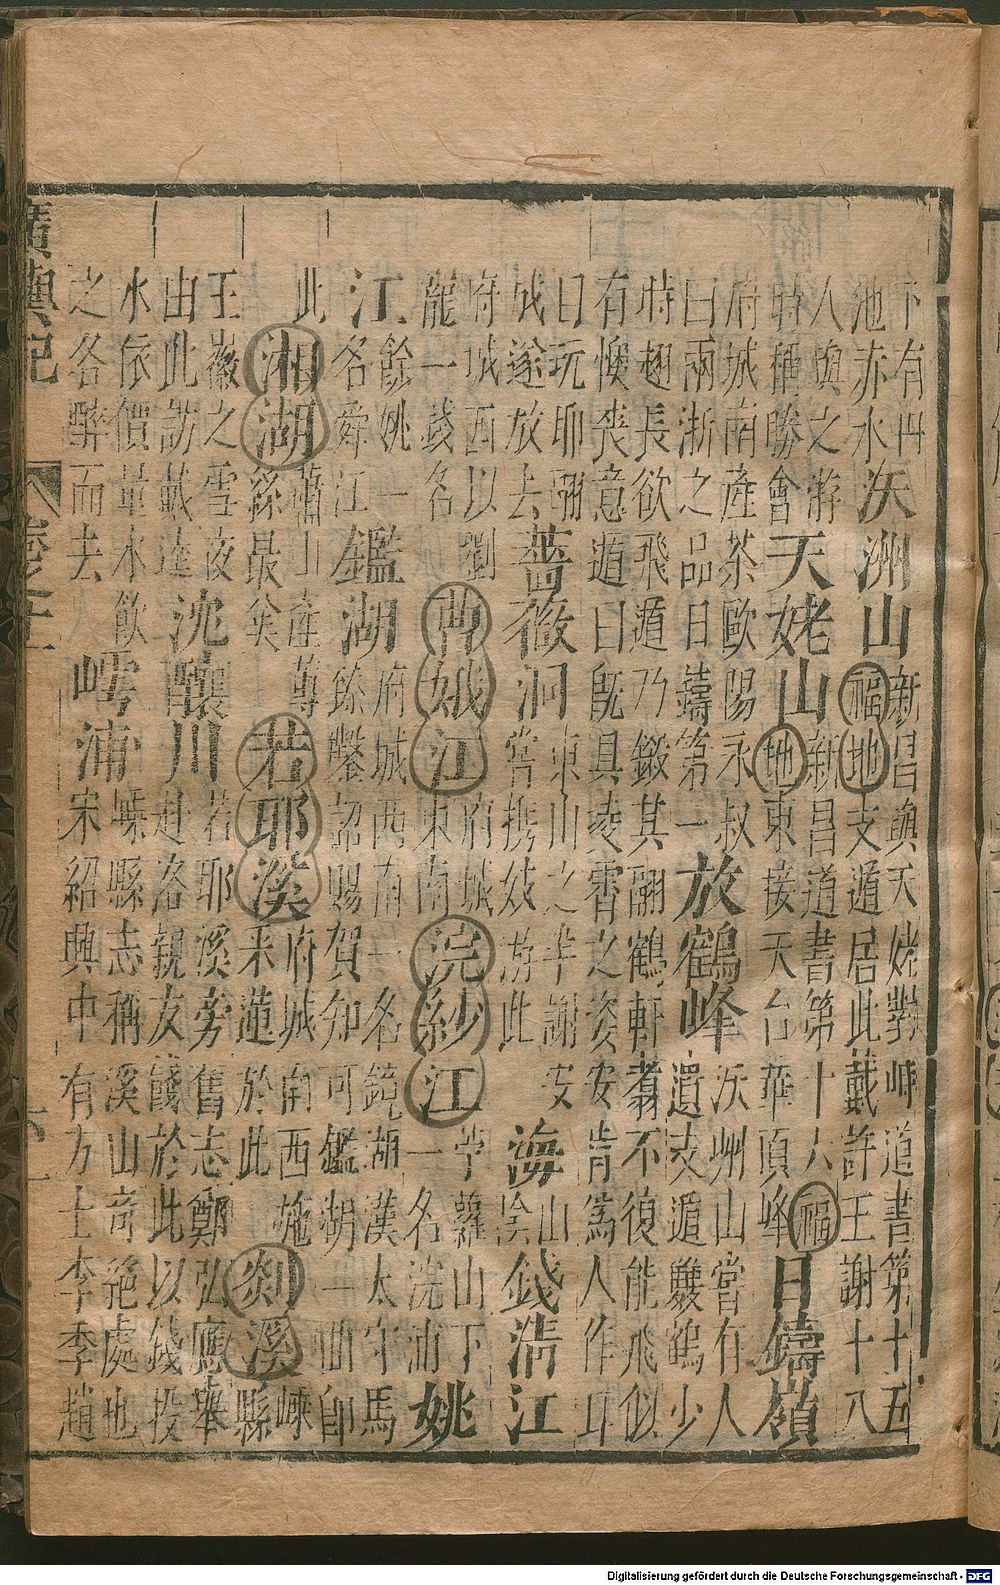 下有丹
池赤水
沃洲山
新昌與天姥對峙道書第十五
福地支遁居此戴許王謝十八
人與之游
時稱勝會
天姥山
新昌道書第十六福
地東接天台華頂峰
日鑄嶺
府城南產茶歐陽永叔
曰兩浙之品日鑄第一
放鶴峰
沃州山嘗有人
遺支遁雙鶴少
時翅長欲飛遁乃鎩其翮鶴軒翥不復能飛似
有懊喪意遁曰旣具凌霄之姿安肯爲人作耳
目玩耶
成遂放去
薔薇洞
東山之半謝安
嘗携妓游此
海
山
陰
錢淸江
府城西以劉
龍一錢名
曹娥江
府城
東南
浣紗江
苧蘿山下
一名浣浦
姚
江
餘姚一
名舜江
鑑湖
府城西南一名鏡湖漢太守馬
臻鑿詔賜賀知可鑑湖一曲卽
此
湘湖
蕭山產蓴
絲最美
若耶溪
府城南西施
采蓮於此
剡溪
嵊
縣
王徽之雪夜
由此訪戴逵
沈釀川
若耶溪旁舊志鄭弘應舉
赴洛親友餞於此以錢投
水依價量水飲
之各醉而去
嶀浦
嵊縣志稱溪山奇絕處也
宋紹興中有方士李季趙
廣輿記